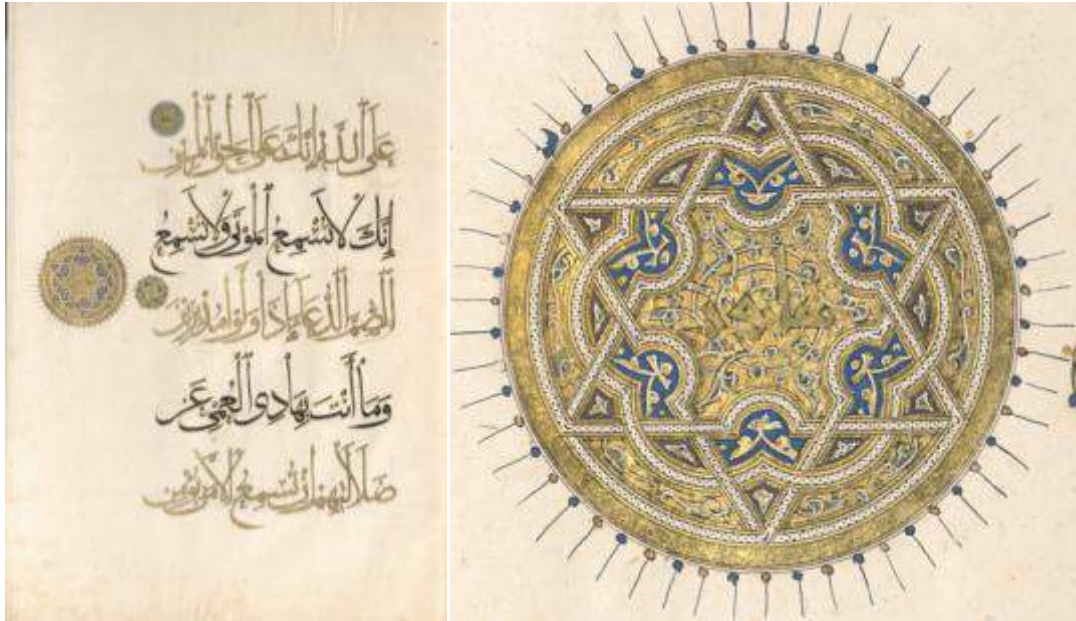 عَلَى اللَّهِ إِنَّكَ عَلَى الْحَقِّ الْمُبِينِ
إِنَّكَ لَا تُسْمِعُ الْمَوْتَى وَلَا تُسْمِعُ
الصُّمَّ الدُّعَاءَ إِذَا وَلَّوْا مُدْبِرِينَ
وَمَا أَنْتَ بِهَادِى الْعُمْىِ عَنْ
ضَلَالَتِهِمْ إِنْ تُسْمِعُ إِلَّا مَنْ يُؤْمِنُ